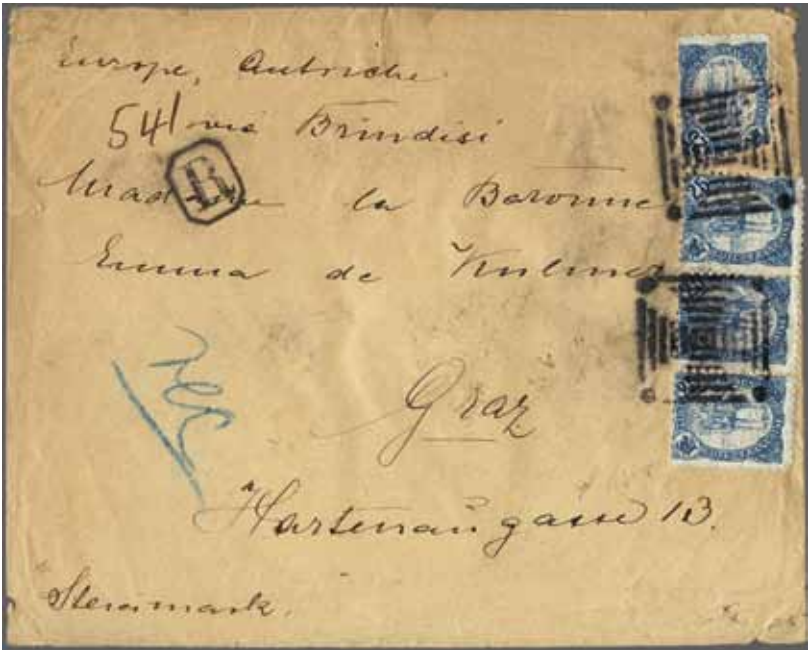 Europe, Autriche
541 via Brindisi
R
Madame la Baronne
Emma de
Graz
Hartenaugasse 13.
Steiermark.